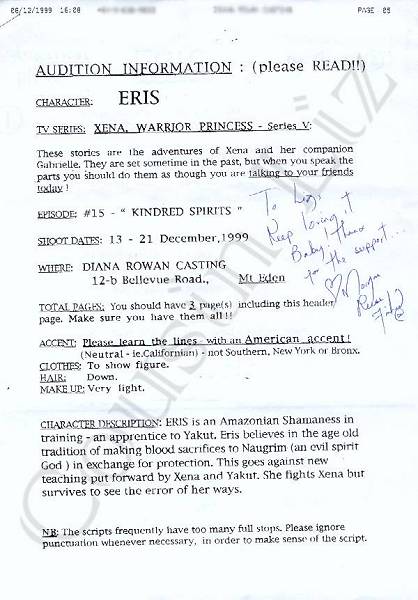 08/12/1999 16:08 PAGE 05
AUDITION INFORMATION : (please READ!!)
CHARACTER: ERIS
TV SERIES: XENA, WARRIOR PRINCESS - Series V:
These stories are the adventures of Xena and her companion
Gabrielle. They are set sometime in the past, but when you speak the
parts you should do them as though you are talking to your friends
today !
EPISODE: #15 - " KINDRED SPIRITS "
SHOOT DATES: 13 - 21 December,1999
WHERE: DIANA ROWAN CASTING
12-b Bellevue Road., Mt Eden
TOTAL PAGES: You should have 3 page(s) including this header
page. Make sure you have them all!!
To
Keep loving it
Baby! Thanx
for the support...
ACCENT: Please learn the lines - with an American accent!
(Neutral - ie.Californian) - not Southern, New York or Bronx.
CLOTHES: To show figure.
HAIR: Down.
MAKE UP: Very light.
CHARACTER DESCRIPTION: ERIS is an Amazonian Shamaness in
training - an apprentice to Yakut. Eris believes in the age old
tradition of making blood sacrifices to Naugrim (an evil spirit
God ) in exchange for protection. This goes against new
teaching put forward by Xena and Yakut. She fights Xena but
survives to see the error of her ways.
NB: The scripts frequently have too many full stops. Please ignore
punctuation whenever necessary, in order to make sense of the script.